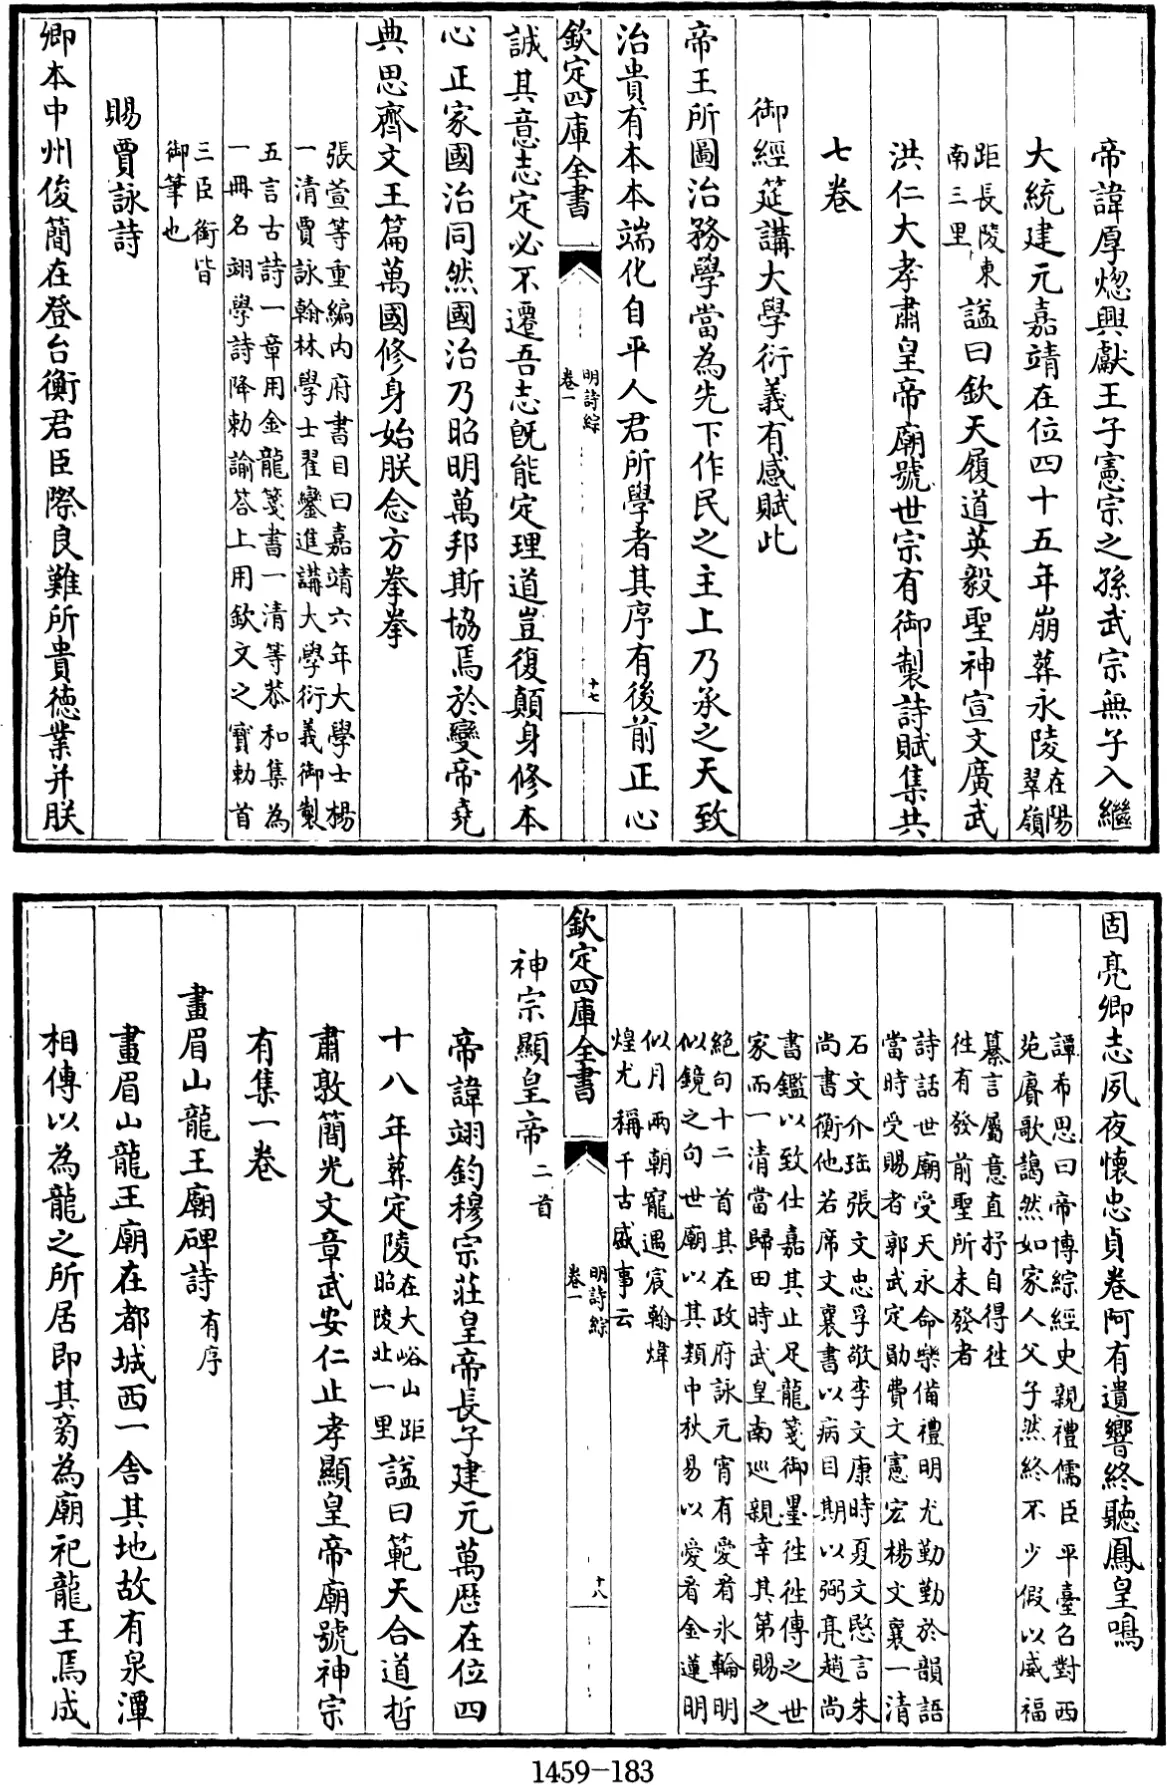 帝諱厚熜興獻王子憲宗之孫武宗無子入繼
大統建元嘉靖在位四十五年崩葬永陵在陽翠嶺
距長陵東南三里諡曰欽天履道英毅聖神宣文廣武
洪仁大孝肅皇帝廟號世宗有御製詩賦集共
七卷
御經筵講大學衍義有感賦此
帝王所圖治務學當為先下作民之主上乃承之天致
治貴有本本端化自平人君所學者其序有後前正心
欽定四庫全書
明詩綜
卷一
十七
誠其意志定必不遷吾志旣能定理道豈復顛身修本
心正家國治同然國治乃昭明萬邦斯協焉於變帝堯
典思齊文王篇萬國修身始朕念方拳拳
張萱等重編内府書目曰嘉靖六年大學士楊
一清賈詠翰林學士翟鑾進講大學衍義御製
五言古詩一章用金龍箋書一清等恭和集為
一冊名翊學詩降勅諭答上用欽文之寶勅首
三臣銜皆
御筆也
賜賈詠詩
卿本中州俊簡在登台衡君臣際良難所貴德業并朕
固亮卿志夙夜懷忠貞卷阿有遺響終聽鳳皇鳴
譚希思曰帝博綜經史親禮儒臣平臺召對西
苑賡歌藹然如家人父子然終不少假以威福
纂言屬意直抒自得徃
徃有發前聖所未發者
詩話世廟受天永命樂備禮明尤勤勤於韻語
當時受賜者郭武定勛費文憲宏楊文襄一清
石文介珤張文忠孚敬李文康時夏文愍言朱
尚書衡他若席文襄書以病目期以弼亮趙尚
書鑑以致仕嘉其止足龍箋御墨徃徃傳之世
家而一清當歸田時武皇南廵親幸其第賜之
絶句十二首其在政府詠元宵有愛看氷輪明
似鏡之句世廟以其類中秋易以愛看金蓮明
似月兩朝寵遇宸翰煒
煌尤稱千古盛事云
欽定四庫全書
明詩綜
卷一
十八
神宗顯皇帝二首
帝諱翊鈞穆宗莊皇帝長子建元萬歴在位四
十八年葬定陵在大峪山距昭陵北一里諡曰範天合道哲
肅敦簡光文章武安仁止孝顯皇帝廟號神宗
有集一卷
畫眉山龍王廟碑詩有序
畫眉山龍王廟在都城西一舍其地故有泉潭
相傳以為龍之所居即其旁為廟祀龍王焉成
1459-183